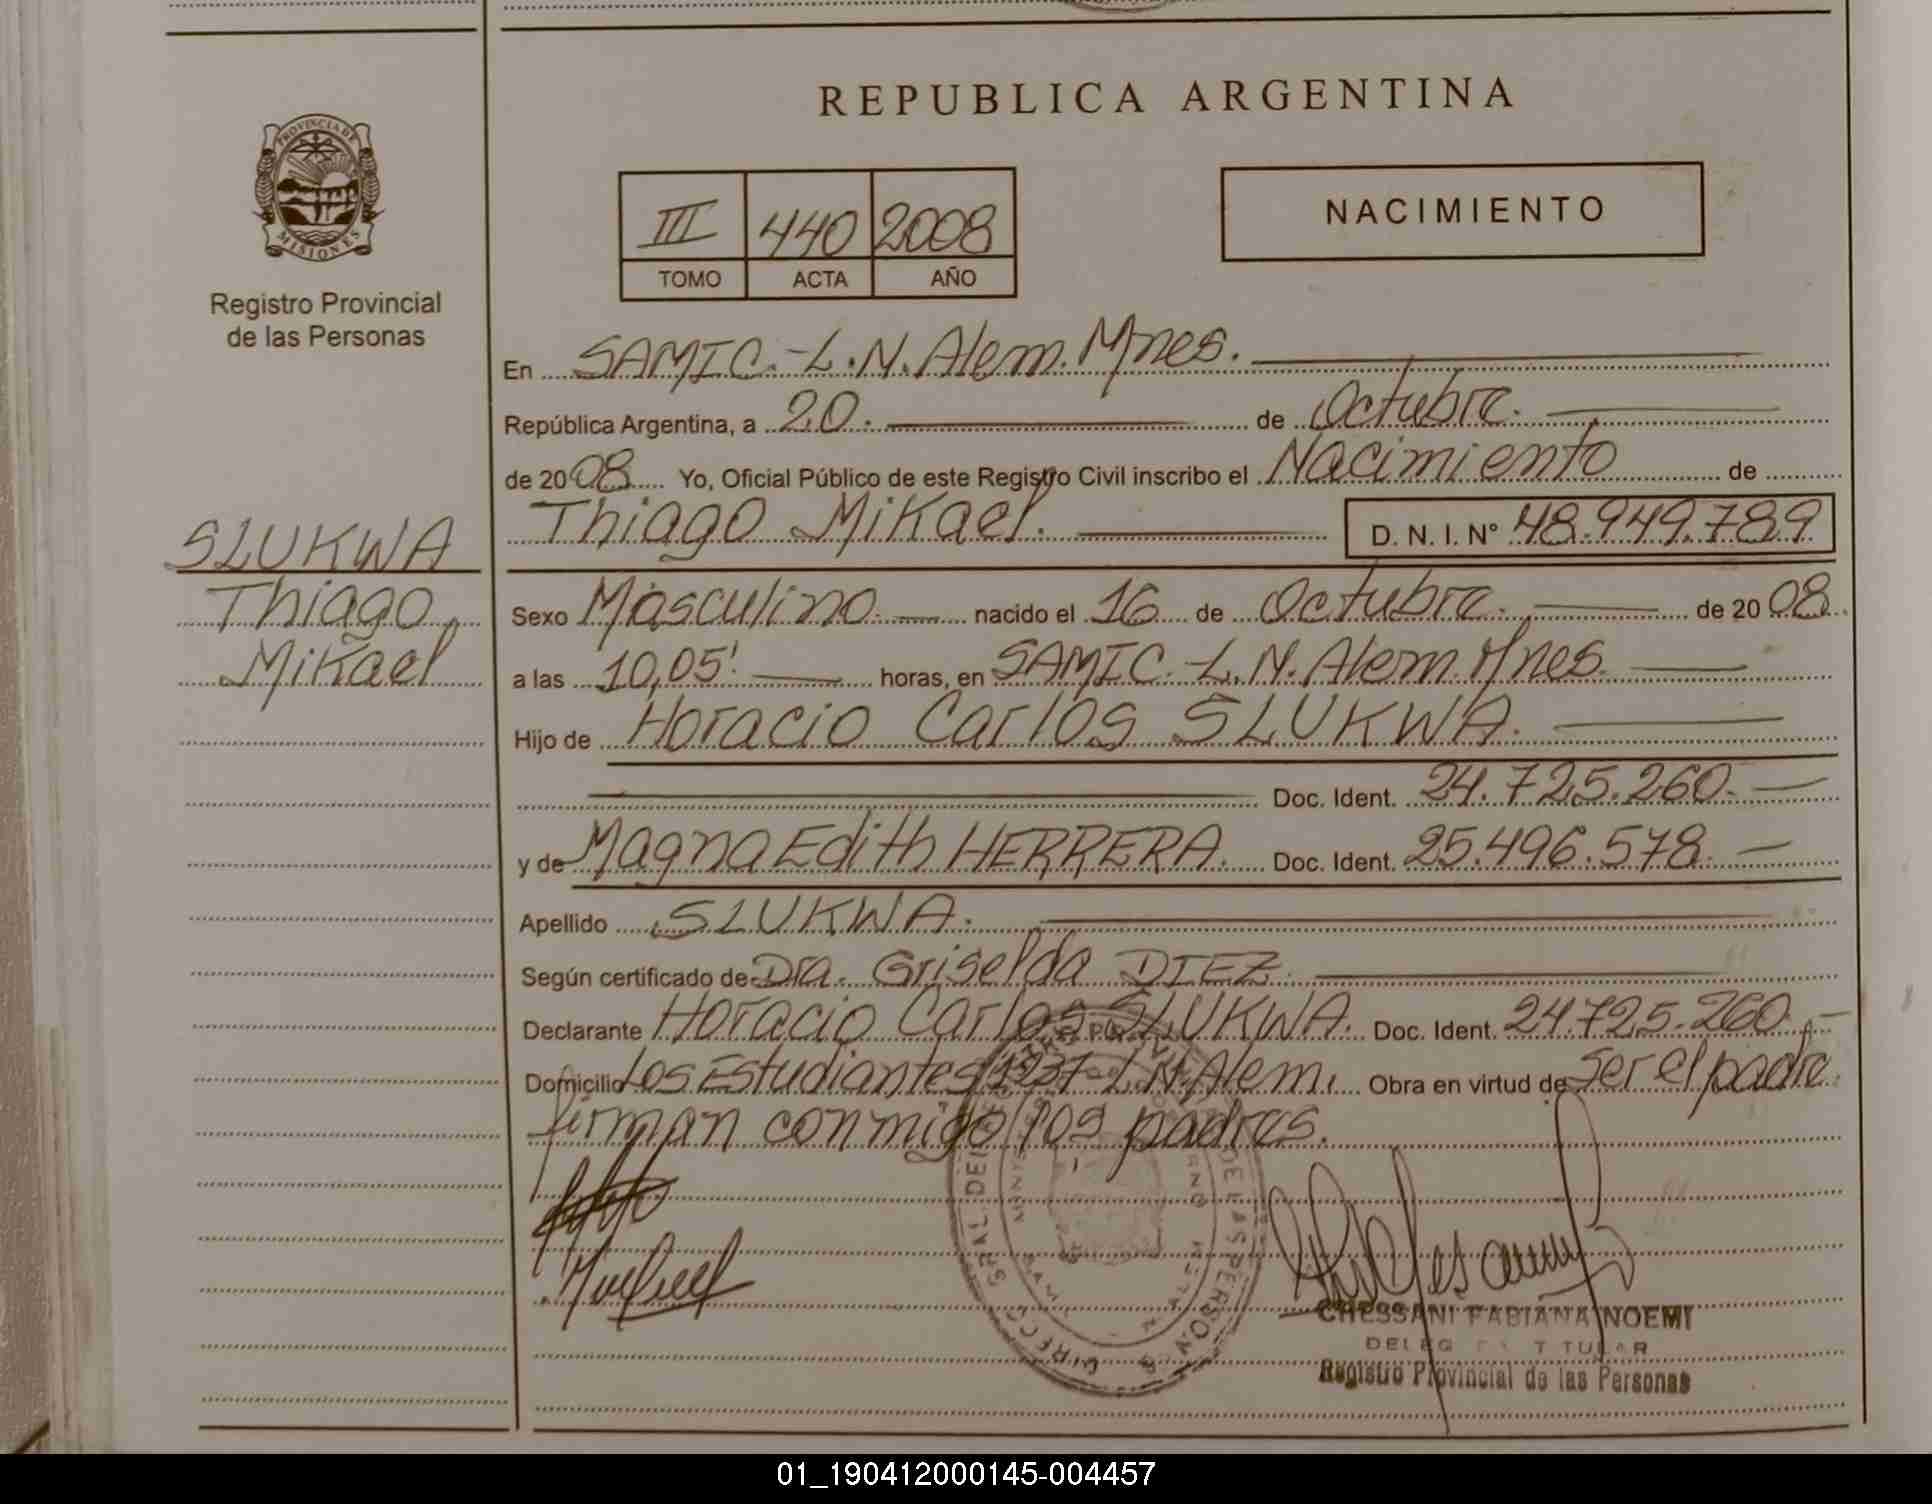 REPUBLICA ARGENTINA
PROVINCIA DE
MISIONES
Registro Provincial
de las Personas
III 440 2008
TOMO ACTA AÑO
NACIMIENTO
En SAMIC.-L.N.Alem.Mnes.
República Argentina, a 20. de Octubre.
de 2008 Yo, Oficial Público de este Registro Civil inscribo el Nacimiento de
Thiago Mikael. D. N. I. Nº 48.949.789
SLUKWA
Thiago
Mikael
Sexo Masculino. nacido el 16 de Octubre. de 2008.
a las 10,05' horas, en SAMIC.-L.N.Alem.Mnes.
Hijo de Horacio Carlos SLUKWA.
Doc. Ident. 24.725.260.-
y de Magna Edith HERRERA. Doc. Ident. 25.496.578.-
Apellido SLUKWA.
Según certificado de Dra. Griselda DIEZ.
Declarante Horacio Carlos SLUKWA. Doc. Ident. 24.725.260.-
Domicilio Los Estudiantes 1337-L.N.Alem. Obra en virtud de ser el padre
firman conmigo los padres.
CHESSANI FABIANA NOEMI
TITULAR
Registro Provincial de las Personas
01_190412000145-004457